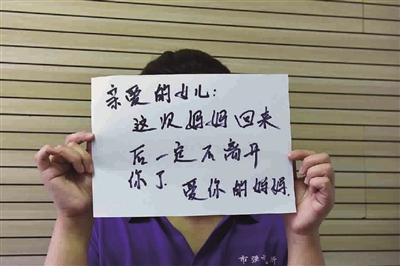 亲爱的女儿:
这次妈妈回来
后一定不离开
你了 爱你的妈妈